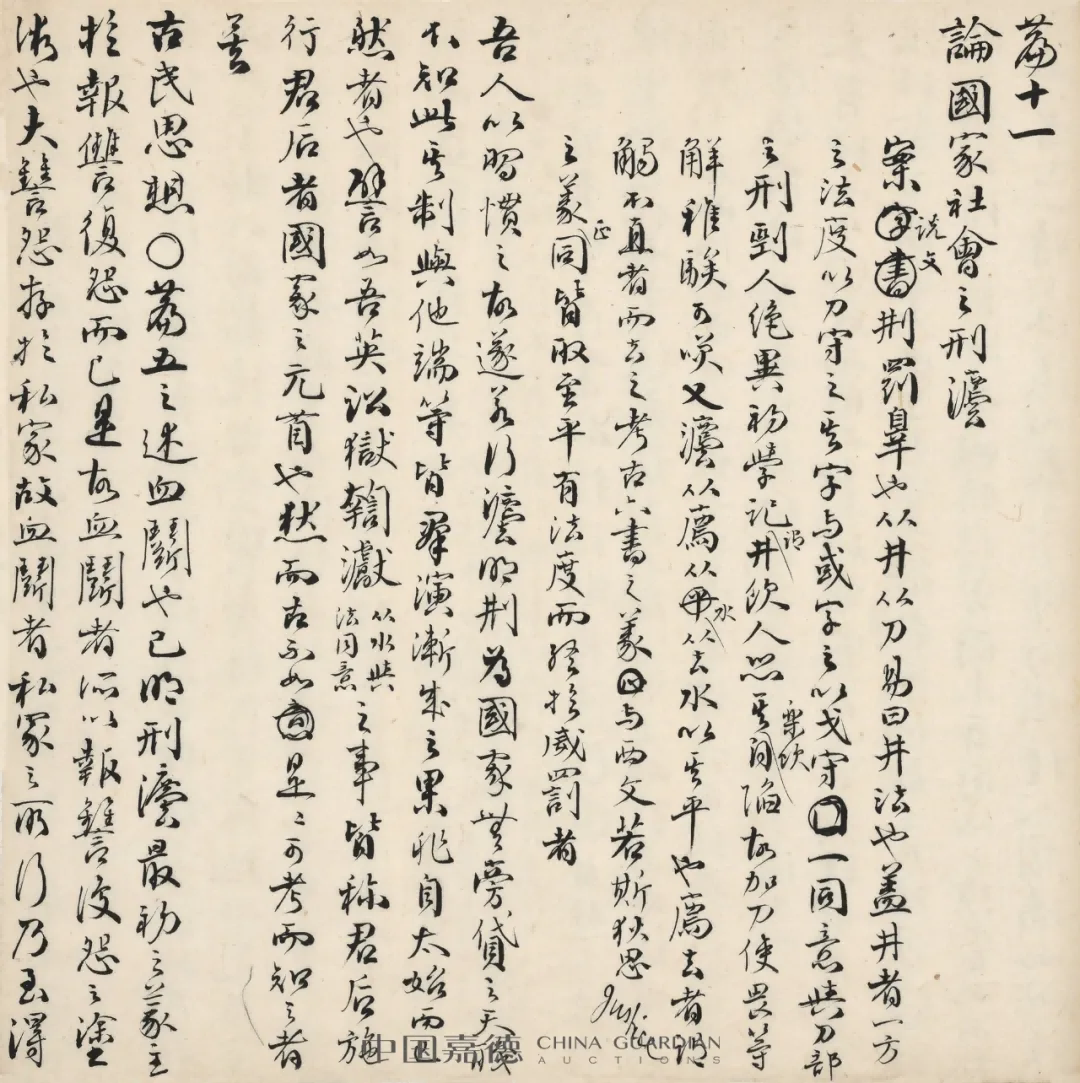 篇十一
論國家社會之刑灋
案說文荆罰辠也从井从刀易曰井法也蓋井者一方
之法度以刀守之其字与或字之以戈守囗一同意與刀部
之刑剄人絶異初學記謂井飲人樂飲則陷故加刀使畏等
解穉騃可唉又灋从廌从水从去水以其平也廌去者謂
觸不直者而去之考古六書之義与西文若斯狄思Justice
之義正同皆取至平有法度而終於威罰者
吾人以習慣之故遂若行灋明荆為國家無旁貸之天職
不知此其制與他端等皆羣演漸成之果非自太始而已
然者也譬如吾英訟獄鞫讞从水與法同意之事皆称君后施
行君后者國家之元首也然而古不如是是可考而知之者
矣
古民思想○篇五之述血鬭也已明刑灋最初之義主
於報讐復怨而已是故血鬭者所以報讐復怨之塗
術也夫讐怨存於私家故血鬭者私家之所行乃至浔
中国嘉德 CHINA GUARDIAN
AUCTIONS